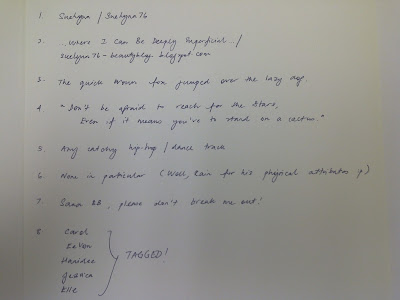 1. Suelynn / Suelynn76
2. ...Where I Can Be Deeply Superficial... /
suelynn76-beautyblog.blogspot.com
3. The quick brown fox jumped over the lazy dog.
4. "Don't be afraid to reach for the stars,
Even if it means you've to stand on a cactus."
5. Any catchy hip-hop / dance track
6. None in particular (Well, Rain for his physical attributes :p)
7. BB, please don't break me out!
8 Carol
Eelyn
Hanidee
Jessica
Elle
TAGGED!